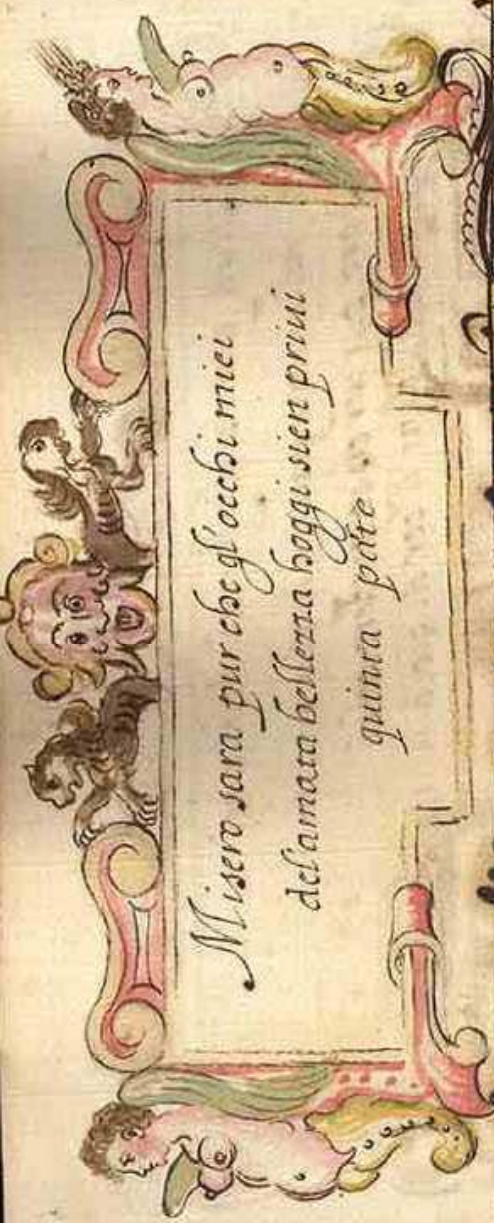 Misero sara pur che gl'occhi miei
del amata bellezza hoggi sien priui
quinta pate